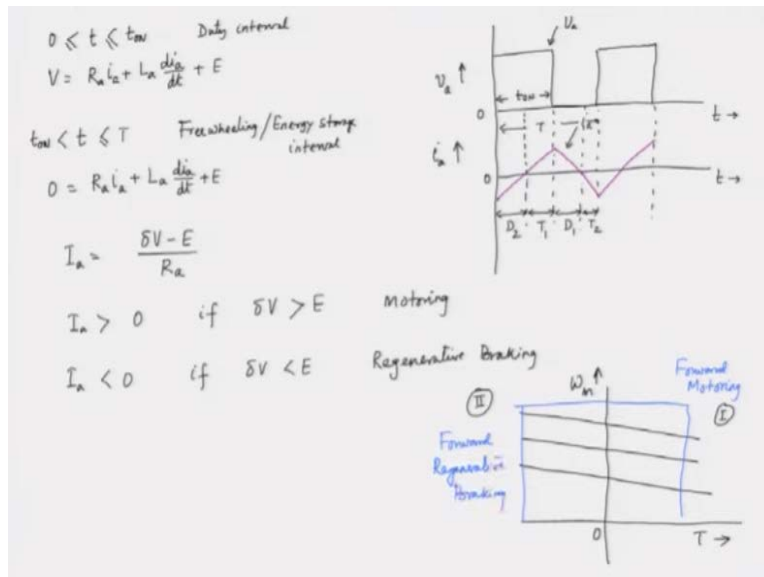 0 ≤ t ≤ tON Duty interval
V = Ra ia + La dia/dt + E
tON < t ≤ T Freewheeling/Energy storage
interval
0 = Ra ia + La dia/dt + E
Ia = δV - E / Ra
Ia > 0 if δV > E Motoring
Ia < 0 if δV < E Regenerative Braking
va
va ↑
← tON →
0
t →
T
ia
ia ↑
0
t →
D2 T1 D1 T2
Forward
Motoring
ωm ↑
II
I
Forward
Regenerative
Braking
0
T →